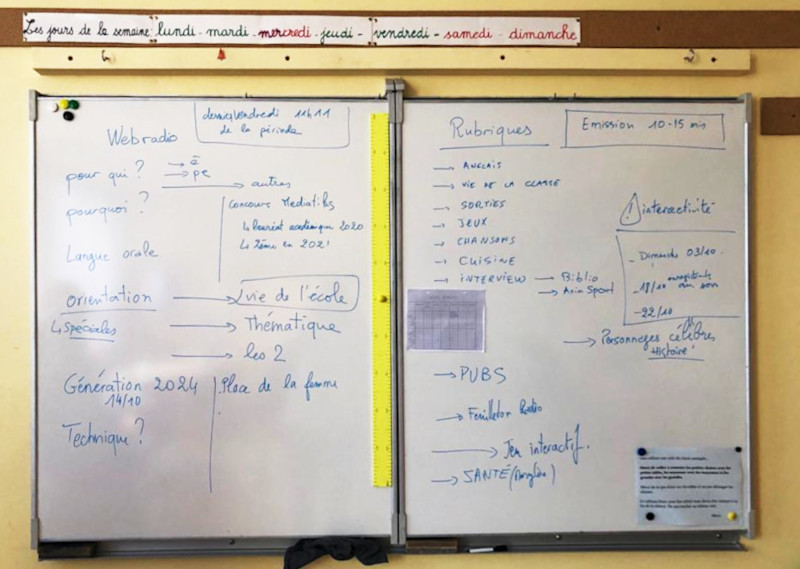 Les jours de la semaine: lundi - mardi - mercredi - jeudi - vendredi - samedi - dimanche
Webradio
vendredi 11h11
de la période
pour qui ?
→ é
→ pe
→ autres
pourquoi ?
Concours Mediatiks
↳ lauréat académique 2020
↳ 2ème en 2021
Langue orale
Orientation → vie de l'école
↳ Spéciales → Thématique
→ les 2
Génération 2024
14/10
Place de la femme
Technique ?
Rubriques
Emission 10-15 min
→ ANGLAIS
→ VIE DE LA CLASSE
→ SORTIES
→ JEUX
→ CHANSONS
→ CUISINE
→ INTERVIEW → Biblio
→ Asin Sport
! interactivité
- Dimanche 03/10
- 18/10 au son
- 22/10
→ Personnages célèbres
Histoire!
→ PUBS
→ Feuilleton Radio
→ Jeu interactif.
→ SANTÉ